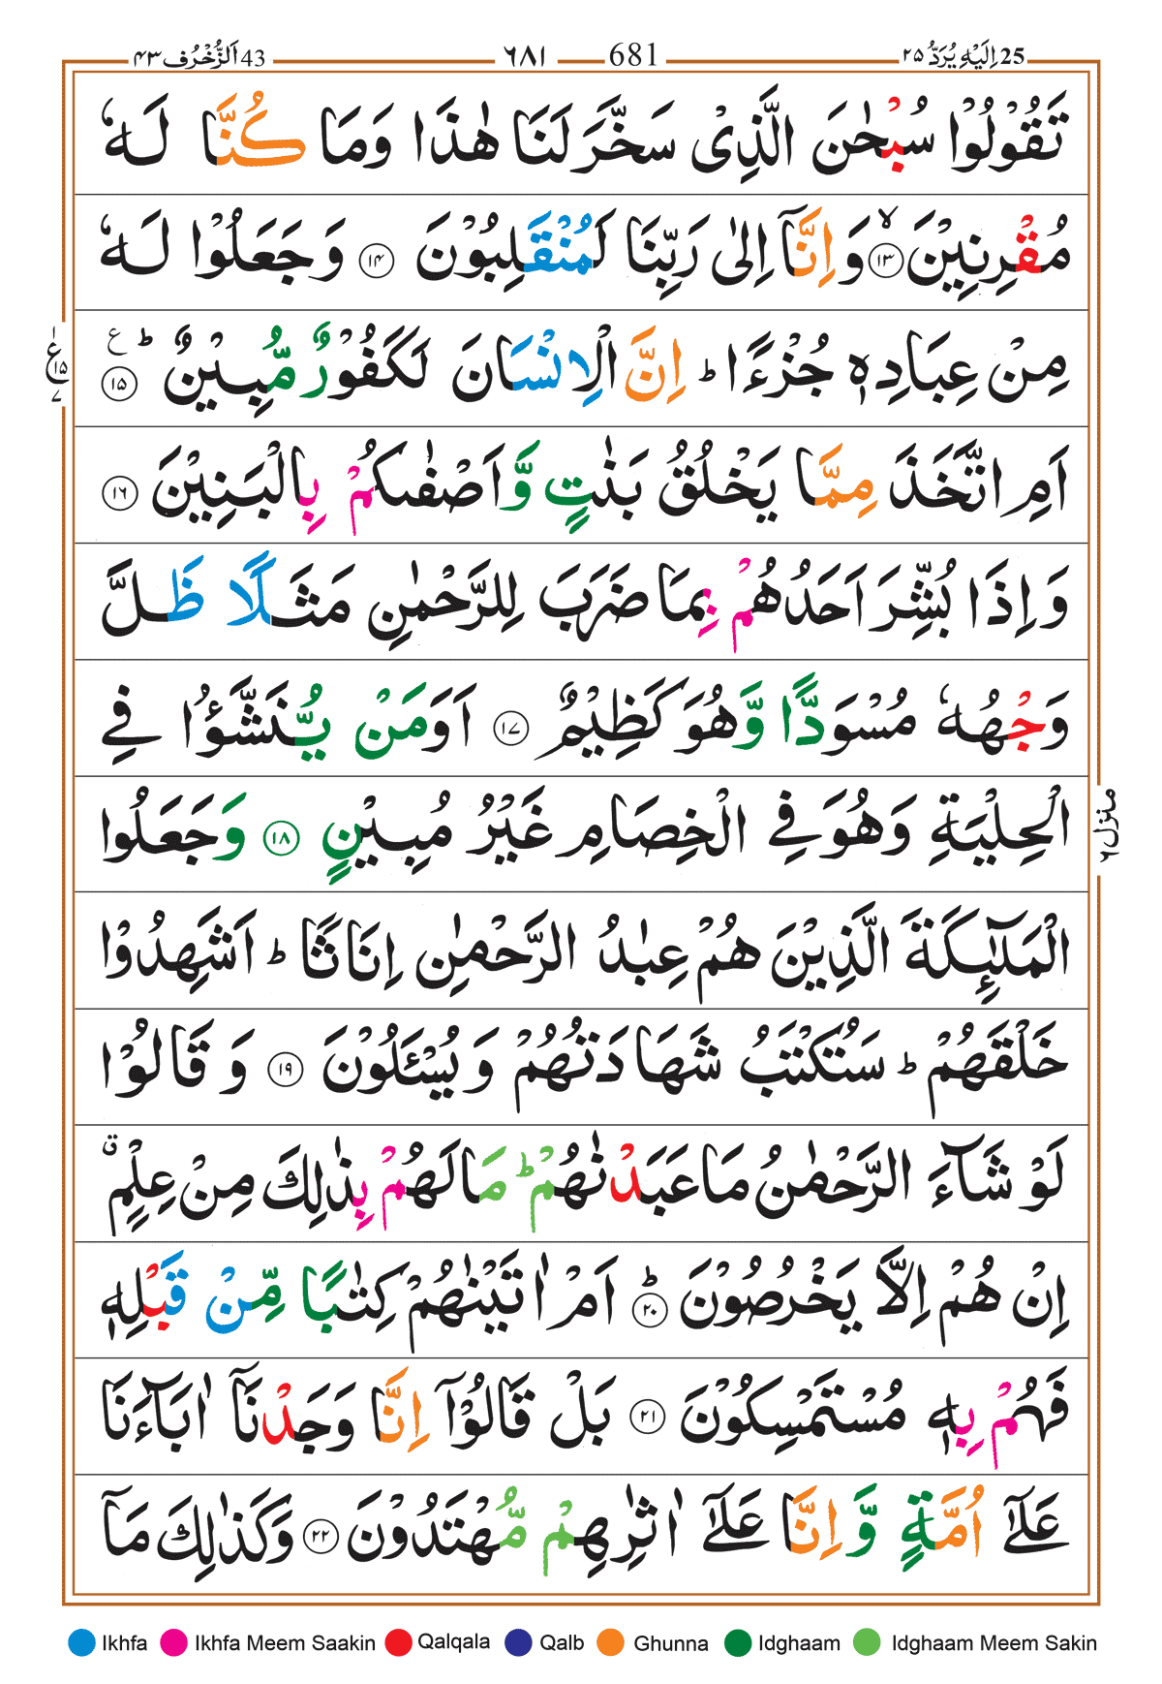 25 اِلَيْهِ يُرَدُّ ٢٥ 681 ٦٨١ 43 اَلزُّخْرُف ٤٣
تَقُوْلُوْا سُبْحٰنَ الَّذِىْ سَخَّرَ لَنَا هٰذَا وَمَا كُنَّا لَهٗ
مُقْرِنِيْنَ ۙ ١٣ وَاِنَّاۤ اِلٰى رَبِّنَا لَمُنْقَلِبُوْنَ ١٤ وَجَعَلُوْا لَهٗ
مِنْ عِبَادِهٖ جُزْءًا ؕ اِنَّ الْاِنْسَانَ لَكَفُوْرٌ مُّبِيْنٌ ؕ ع ١٥
ع ١٥ ٧
اَمِ اتَّخَذَ مِمَّا يَخْلُقُ بَنٰتٍ وَّاَصْفٰىكُمْ بِالْبَنِيْنَ ١٦
وَاِذَا بُشِّرَ اَحَدُهُمْ بِمَا ضَرَبَ لِلرَّحْمٰنِ مَثَلًا ظَلَّ
وَجْهُهٗ مُسْوَدًّا وَّهُوَ كَظِيْمٌ ١٧ اَوَمَنْ يُّنَشَّؤُا فِى
الْحِلْيَةِ وَهُوَ فِى الْخِصَامِ غَيْرُ مُبِيْنٍ ١٨ وَجَعَلُوا
منزل ٦
الْمَلٰٓئِكَةَ الَّذِيْنَ هُمْ عِبٰدُ الرَّحْمٰنِ اِنَاثًا ؕ اَشَهِدُوْا
خَلْقَهُمْ ؕ سَتُكْتَبُ شَهَادَتُهُمْ وَيُسْئَلُوْنَ ١٩ وَقَالُوْا
لَوْ شَآءَ الرَّحْمٰنُ مَا عَبَدْنٰهُمْ ؕ مَا لَهُمْ بِذٰلِكَ مِنْ عِلْمٍ ۗ
اِنْ هُمْ اِلَّا يَخْرُصُوْنَ ؕ ٢٠ اَمْ اٰتَيْنٰهُمْ كِتٰبًا مِّنْ قَبْلِهٖ
فَهُمْ بِهٖ مُسْتَمْسِكُوْنَ ٢١ بَلْ قَالُوْۤا اِنَّا وَجَدْنَاۤ اٰبَآءَنَا
عَلٰٓى اُمَّةٍ وَّاِنَّا عَلٰٓى اٰثٰرِهِمْ مُّهْتَدُوْنَ ٢٢ وَكَذٰلِكَ مَاۤ
Ikhfa Ikhfa Meem Saakin Qalqala Qalb Ghunna Idghaam Idghaam Meem Sakin